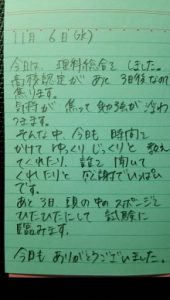 11月 6日(水)
今日は、理科総合でしました。
高校認定が あと 3日後なので
焦ります。
気持が 焦って 勉強が 終わ
そんな中、今日も 時間を
かけて ゆっくり じっくりと 教え
てくれたり、話を 聞いて
くれたりと 感謝でいっぱい
です。
あと 3日、頭の中 スポンジを
ひたひたにして 試験に
臨みます。
今日も ありがとうございました。